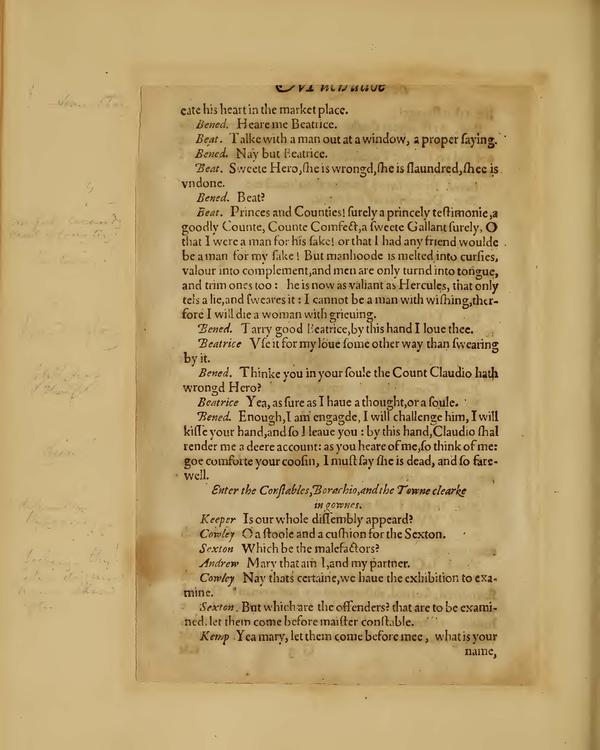 eate his heart in the market place.
Bened. Heare me Beatrice.
Beat. Talke with a man out at a window, a proper saying.
Bened. Nay but Beatrice.
Beat. Sweete Hero, she is wrongd, she is slaundred, shee is
vndone.
Bened. Beat?
Beat. Princes and Counties! surely a princely testimonie, a
goodly Counte, Counte Comfect, a sweete Gallant surely, O
that I were a man for his sake! or that I had any friend woulde
be a man for my sake! But manhoode is melted into cursies,
valour into complement, and men are only turnd into tongue,
and trim ones too: he is now as valiant as Hercules, that only
tels a lie, and sweares it: I cannot be a man with wishing, ther-
fore I will die a woman with grieuing.
Bened. Tarry good Beatrice, by this hand I loue thee.
Beatrice Vse it for my loue some other way than swearing
by it.
Bened. Thinke you in your soule the Count Claudio hath
wrongd Hero?
Beatrice Yea, as sure as I haue a thought, or a soule.
Bened. Enough, I am engagde, I will challenge him, I will
kisse your hand, and so I leaue you: by this hand, Claudio shal
render me a deere account: as you heare of me, so think of me:
goe comforte your coosin, I must say she is dead, and so fare-
well.
Enter the Constables, Borachio, and the Towne clearke
in gownes.
Keeper Is our whole dissembly appeard?
Cowley O a stoole and a cushion for the Sexton.
Sexton Which be the malefactors?
Andrew Mary that am I, and my partner.
Cowley Nay thats certaine, we haue the exhibition to exa-
mine.
Sexton. But which are the offenders? that are to be exami-
ned. let them come before maister constable.
Kemp Yea mary, let them come before mee, what is your
name,